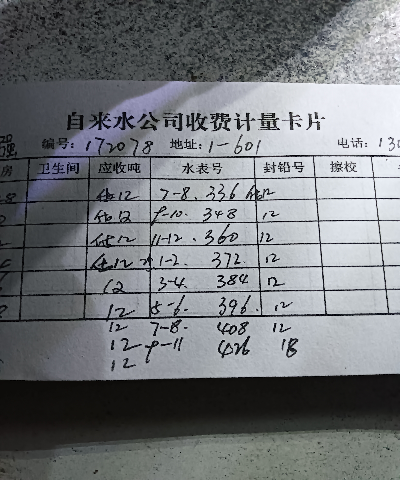 自来水公司收费计量卡片
强 编号: 172078 地址: 1-601 电话: 130
房 卫生间 应收吨 水表号 封铅号 擦校
12 7-8. 336 12
12 9-10. 348 12
12 11-12. 360 12
12 1-2. 372. 12
12 3-4. 384 12
12 5-6. 396. 12
12 7-8. 408 12
12 9-11 426 18
12